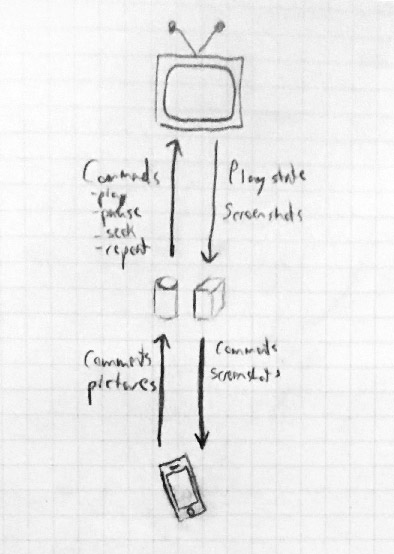 Commands
-play
-pause
-seek
-repeat
Play state
Screenshots
Comments
pictures
Comments
Screenshots